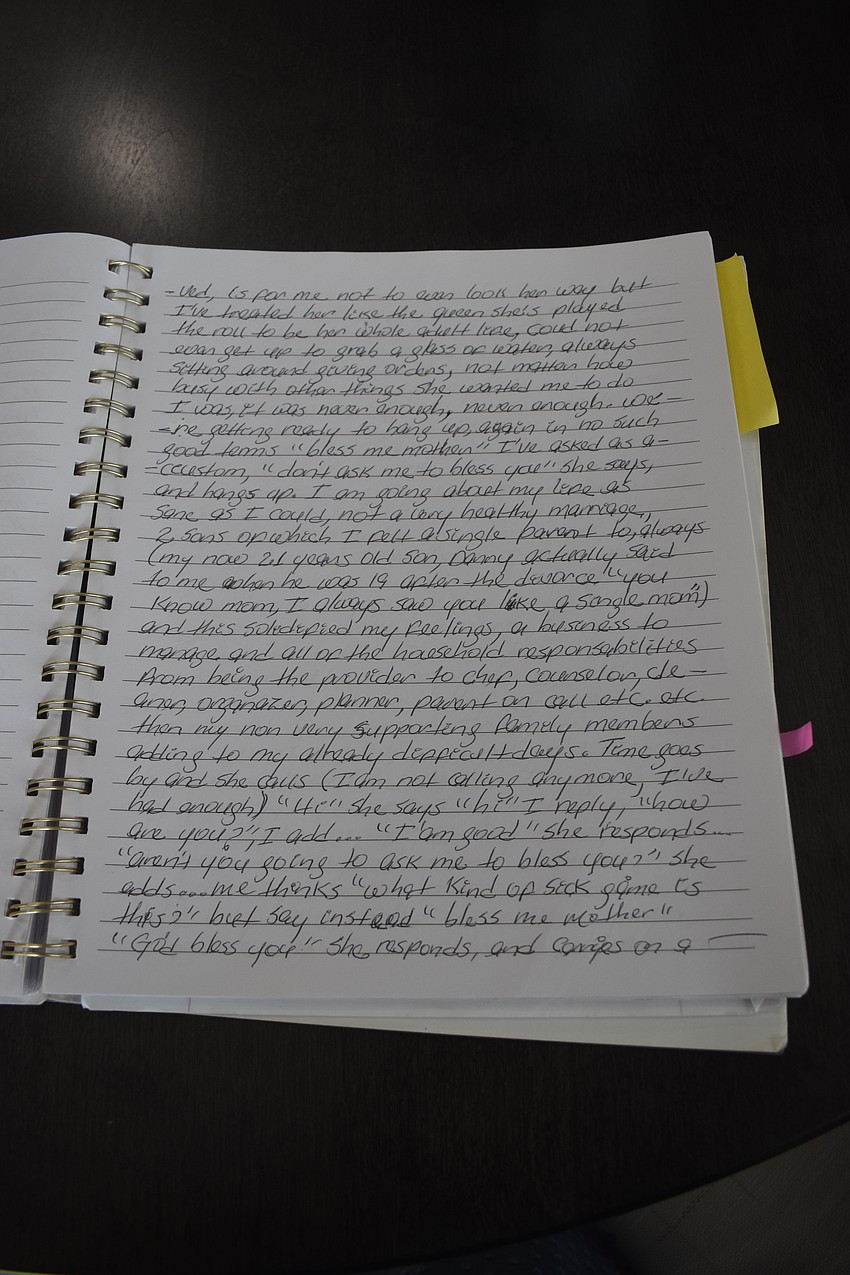 -ved, is for me not to even look her way but
I've treated her like the queen she's played
the roll to be her whole adult life, coud not
even get up to grab a glass of water, always
sitting around giving orders, not matter how
busy with other things she wanted me to do
I was, it was never enough, never enough. we-
-re getting ready to hang up, again in no such
good terms "bless me mother" I've asked as a-
-ccustom, "don't ask me to bless you" she says,
and hangs up. I am going about my life as
sane as I could, not a very healthy marriage,
2 sons of which I felt a single parent to, always
(my now 21 years old son, Danny actually said
to me when he was 19 after the divorce "you
know mom, I always saw you like, a single mom")
and this solidified my feelings, a business to
manage and all of the household responsabilities
from being the provider to chef, counselor, cle-
aner, organizer, planner, parent on call etc. etc.
then my non very supporting family members
adding to my already difficult days. Time goes
by and she calls (I am not calling anymore, I've
had enough) "Hi" she says "hi" I reply, "how
are you?", I add... "I am good" she responds...
"aren't you going to ask me to bless you?" she
adds...me thinks "what kind of sick game is
this?" but say instead "bless me mother"
"God bless you" she responds, and carries on a